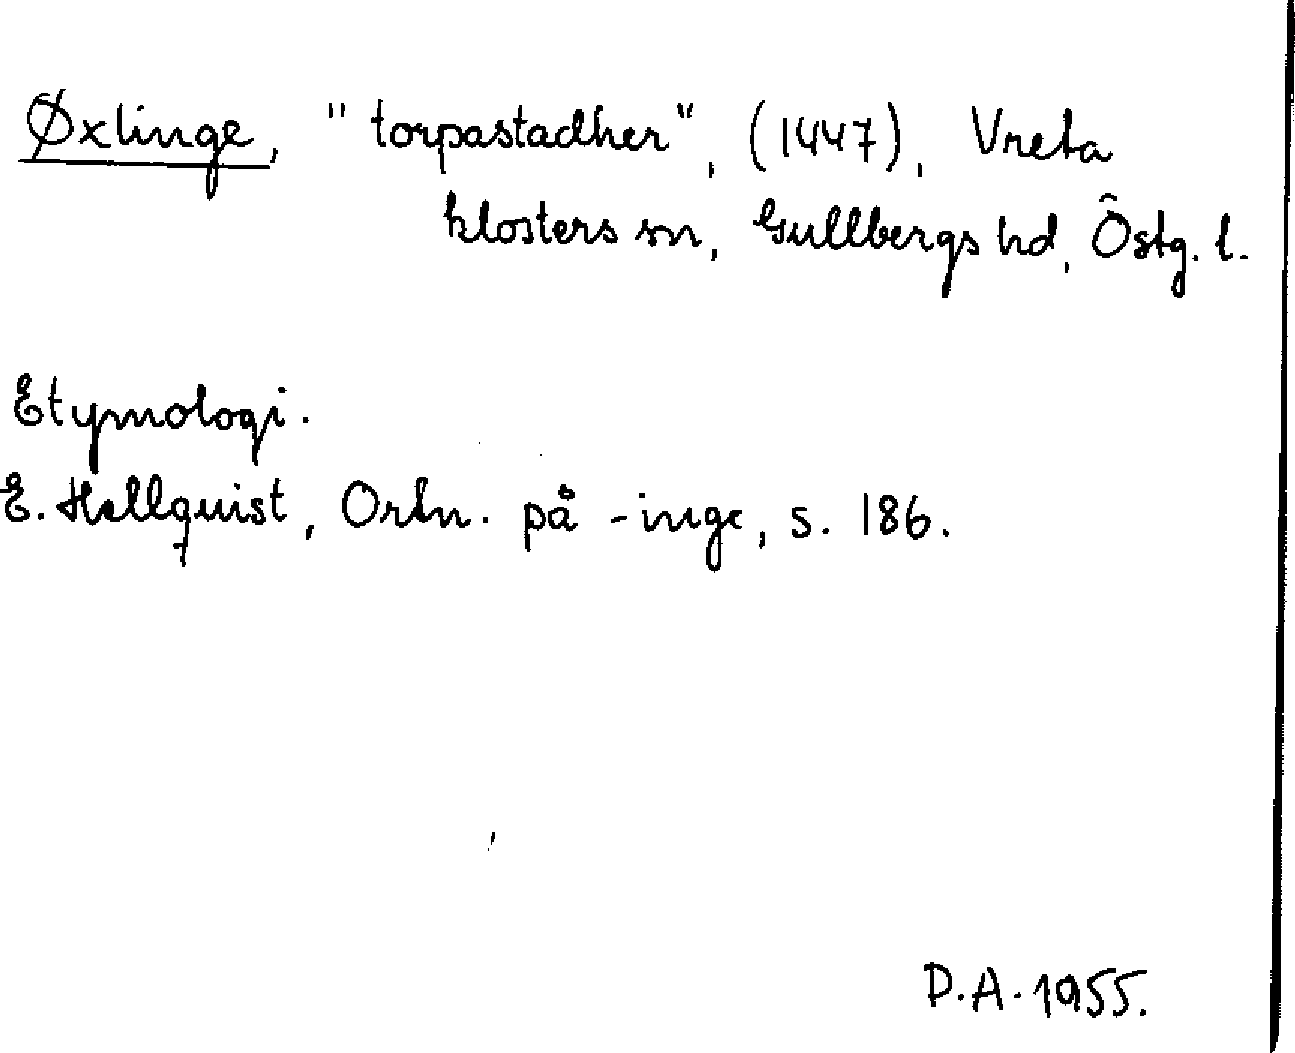 Øxlinge, "torpastadher", (1447), Vreta
klosters sn, Gullbergs hd, Östg. l.
Etymologi.
E. Hellquist, Ortn. på -inge, s. 186.
D.A. 1955.